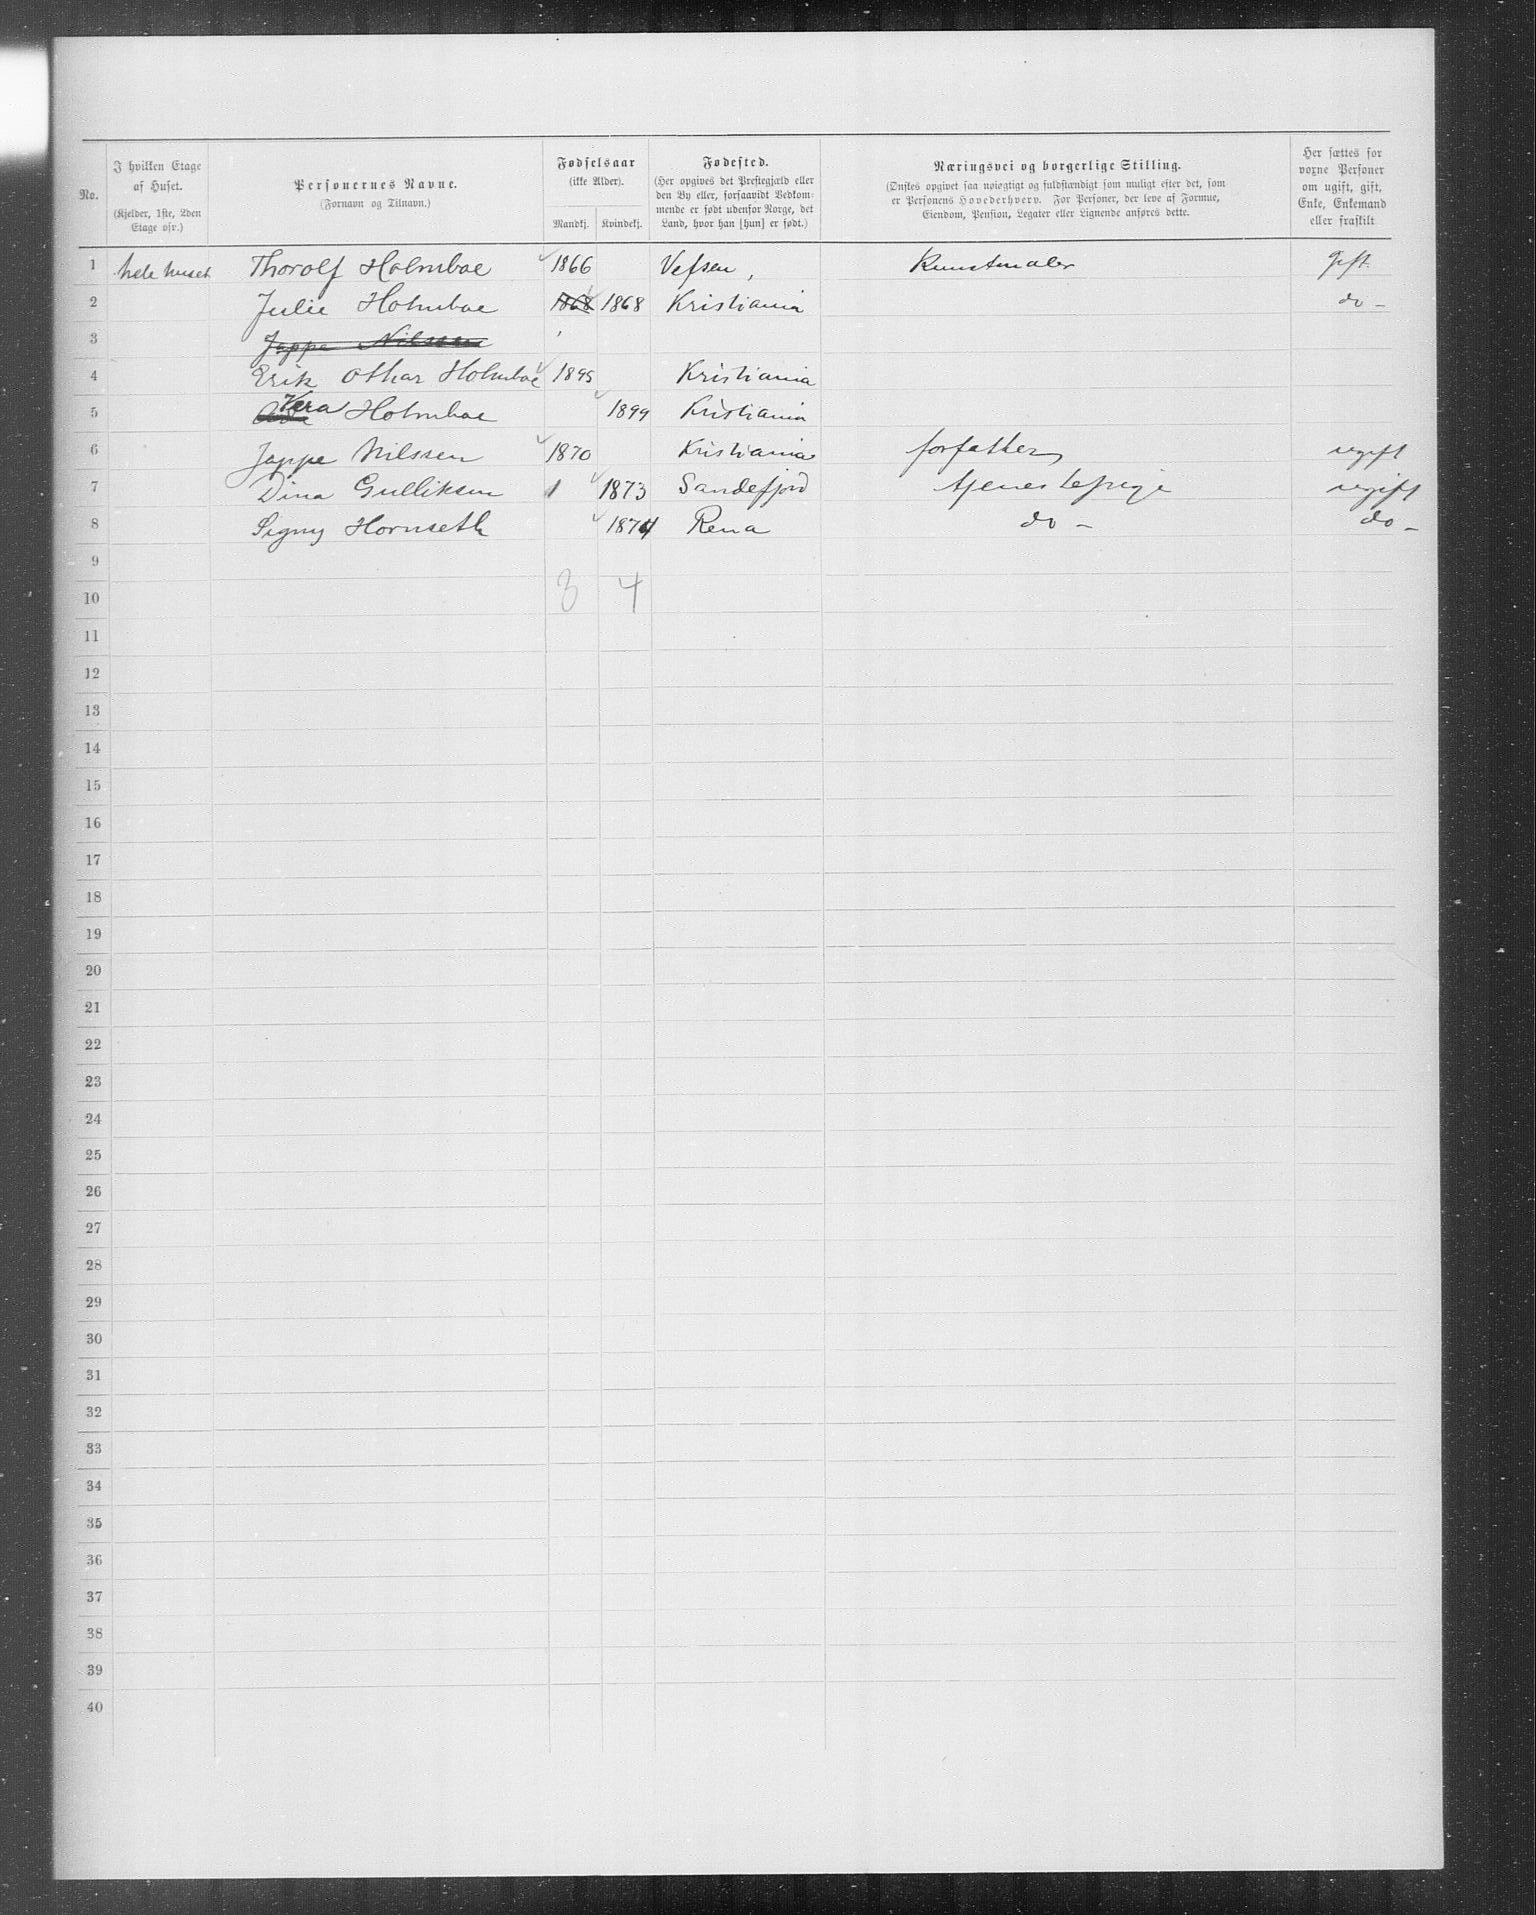 No. | I hvilken Etage af Huset. (Kjelder, 1ste, 2den Etage osv.) | Personernes Navne. (Fornavn og Tilnavn.) | Fødselsaar (ikke Alder). Mandkj. | Kvindekj. | Fødested. (Her opgives det Prestegjæld eller den By eller, forsaavidt Vedkommende er født udenfor Norge, det Land, hvor han [hun] er født.) | Næringsvei og borgerlige Stilling. (Ønskes opgivet saa nøiagtigt og fuldstændigt som muligt efter det, som er Personens Hovederhverv. For Personer, der leve af Formue, Eiendom, Pension, Legater eller Lignende anføres dette. | Her sættes for voxne Personer om ugift, gift, Enke, Enkemand eller fraskilt
1 hele huset Thorolf Holmboe 1866 Vefsen, Kunstmaler gift.
2 Julie Holmboe 1868 1868 Kristiania do –
3 Jappe Nilssen
4 Erik Othar Holmboe 1895 Kristiania
5 Vera Holmboe 1899 Kristiania
6 Jappe Nilssen 1870 Kristiania forfatter, ugift
7 Dina Gulliksen 1 1873 Sandefjord tjenestepige ugift
8 Signy Hornseth 1874 Rena do – do –
9
10 3 4
11
12
13
14
15
16
17
18
19
20
21
22
23
24
25
26
27
28
29
30
31
32
33
34
35
36
37
38
39
40